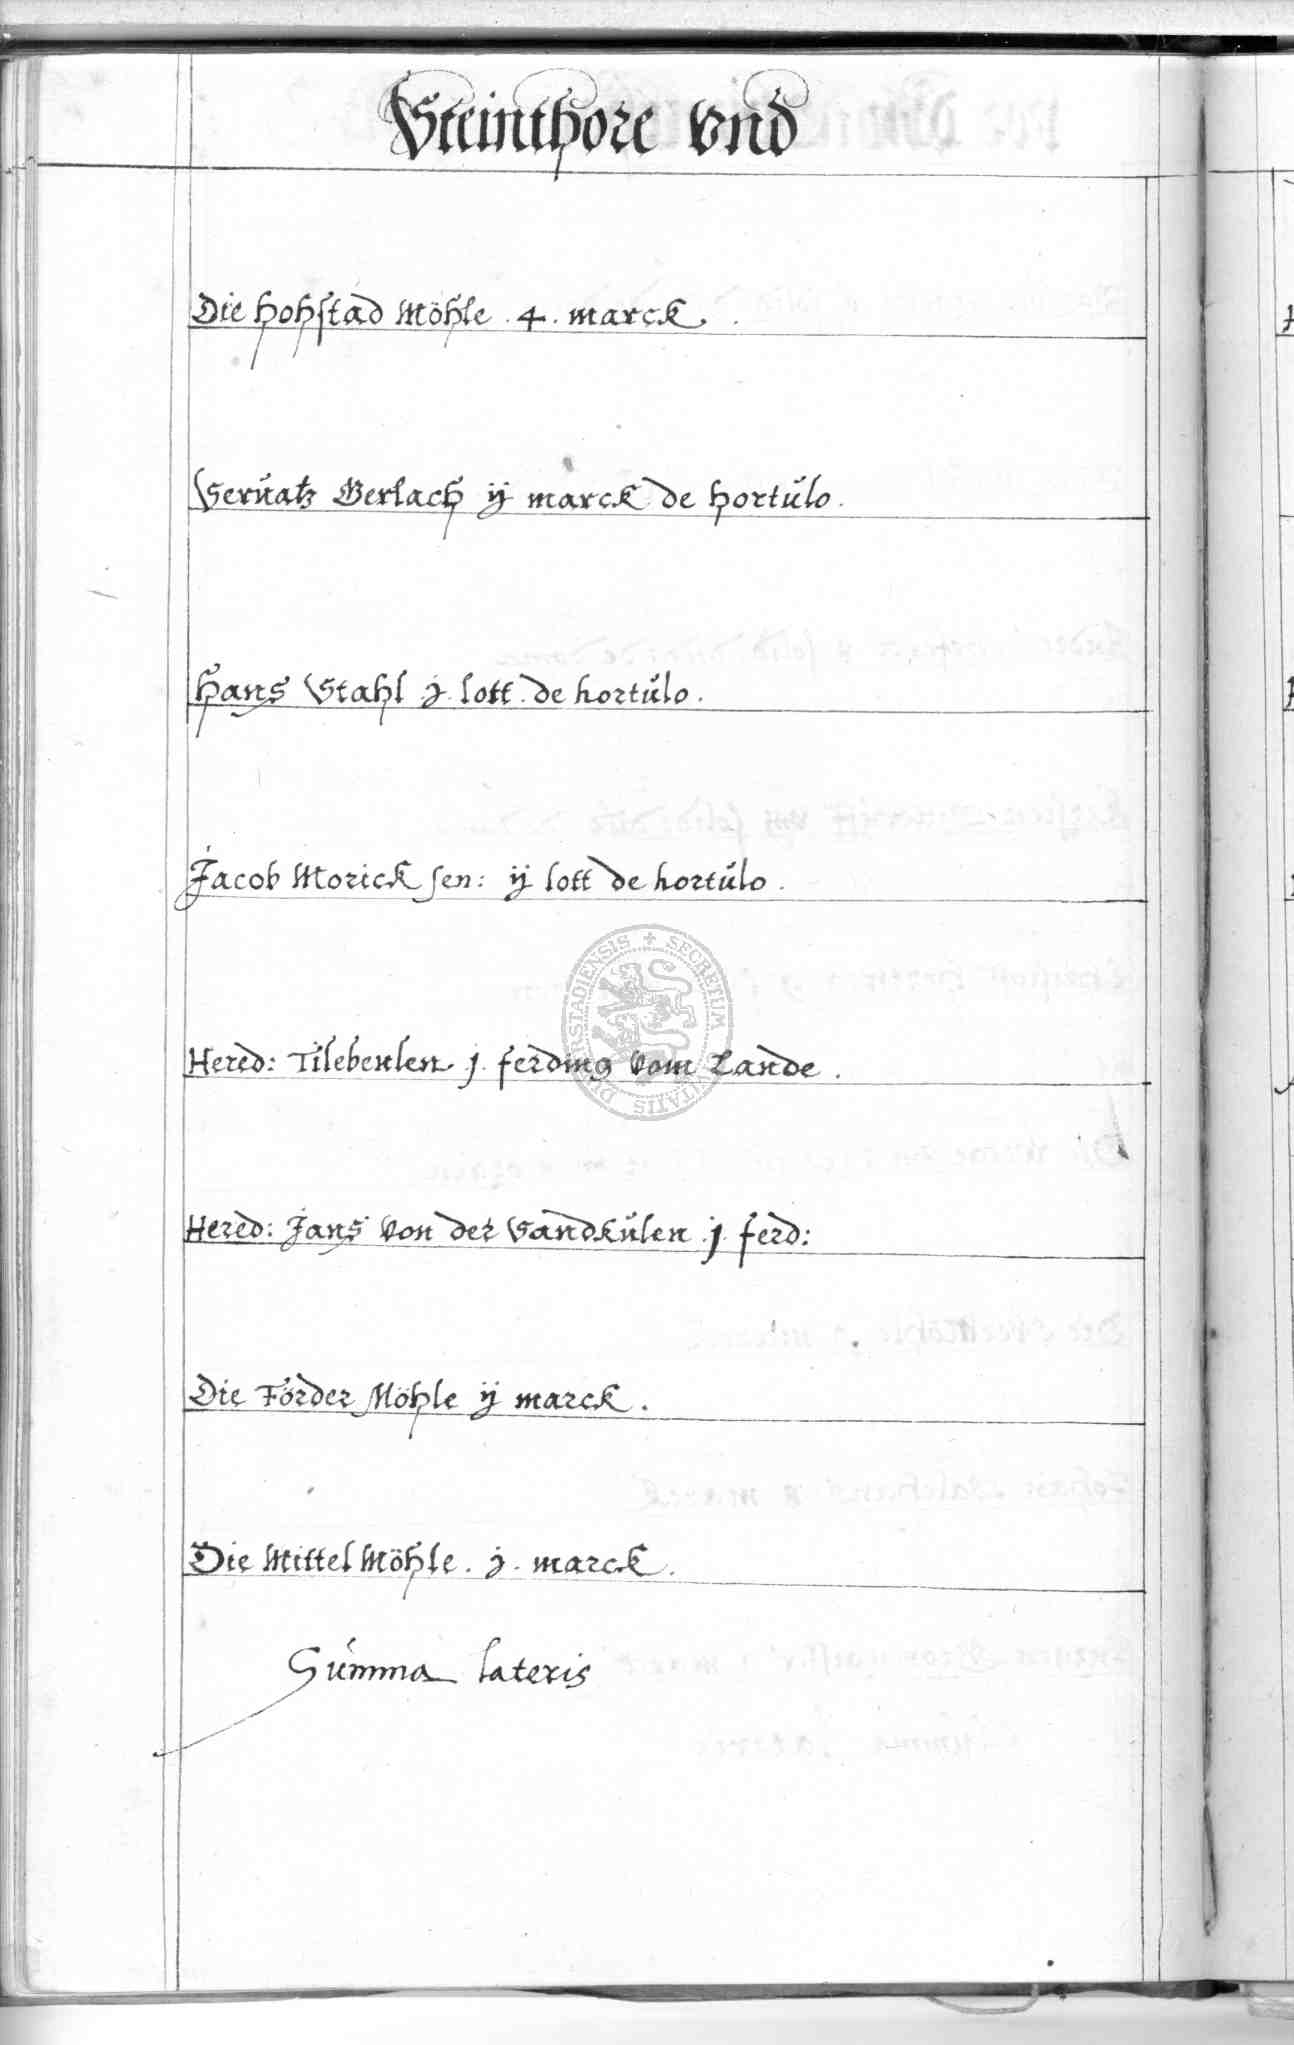 Steinthore vnd
Die hohstad Möhle . 4 . marck .
Seruatz Gerlach ij marck de hortulo .
Hans Stahl .j. lott . de hortulo .
Jacob Morick sen: ij lott de hortulo .
Hered: Tilebenlen .j. ferding vom Lande .
Hered: Jans von der Sandkulen .j. ferd:
Die Förder Möhle ij marck .
Die Mittel Möhle . j . marck .
Summa lateris
SECRETUM